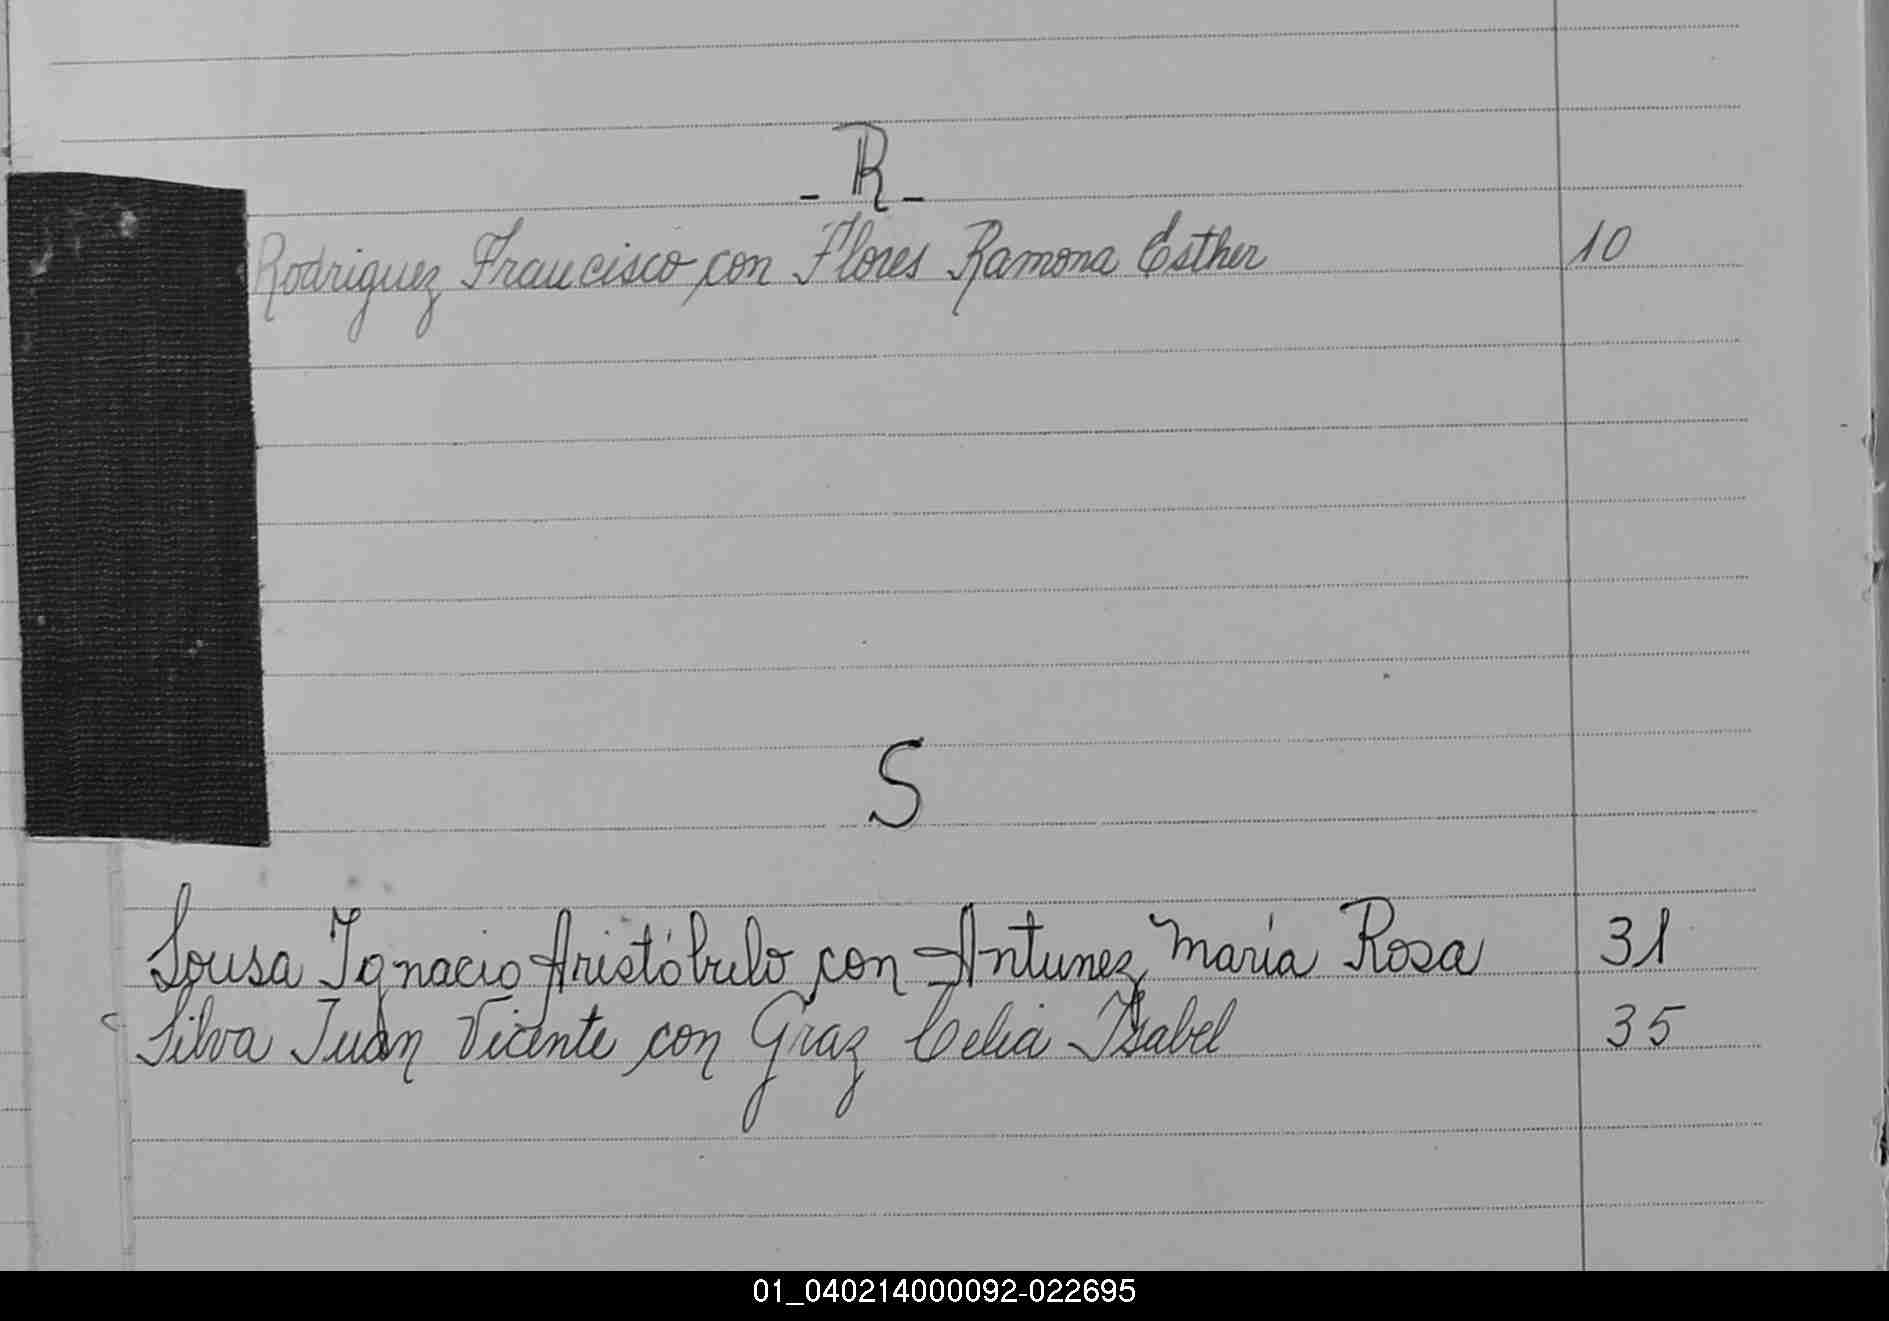 - R -
Rodriguez Francisco con Flores Ramona Esther 10
S
Sousa Ignacio Aristóbulo con Antunez María Rosa 31
Silva Juan Vicente con Graz Celia Isabel 35
01_040214000092-022695